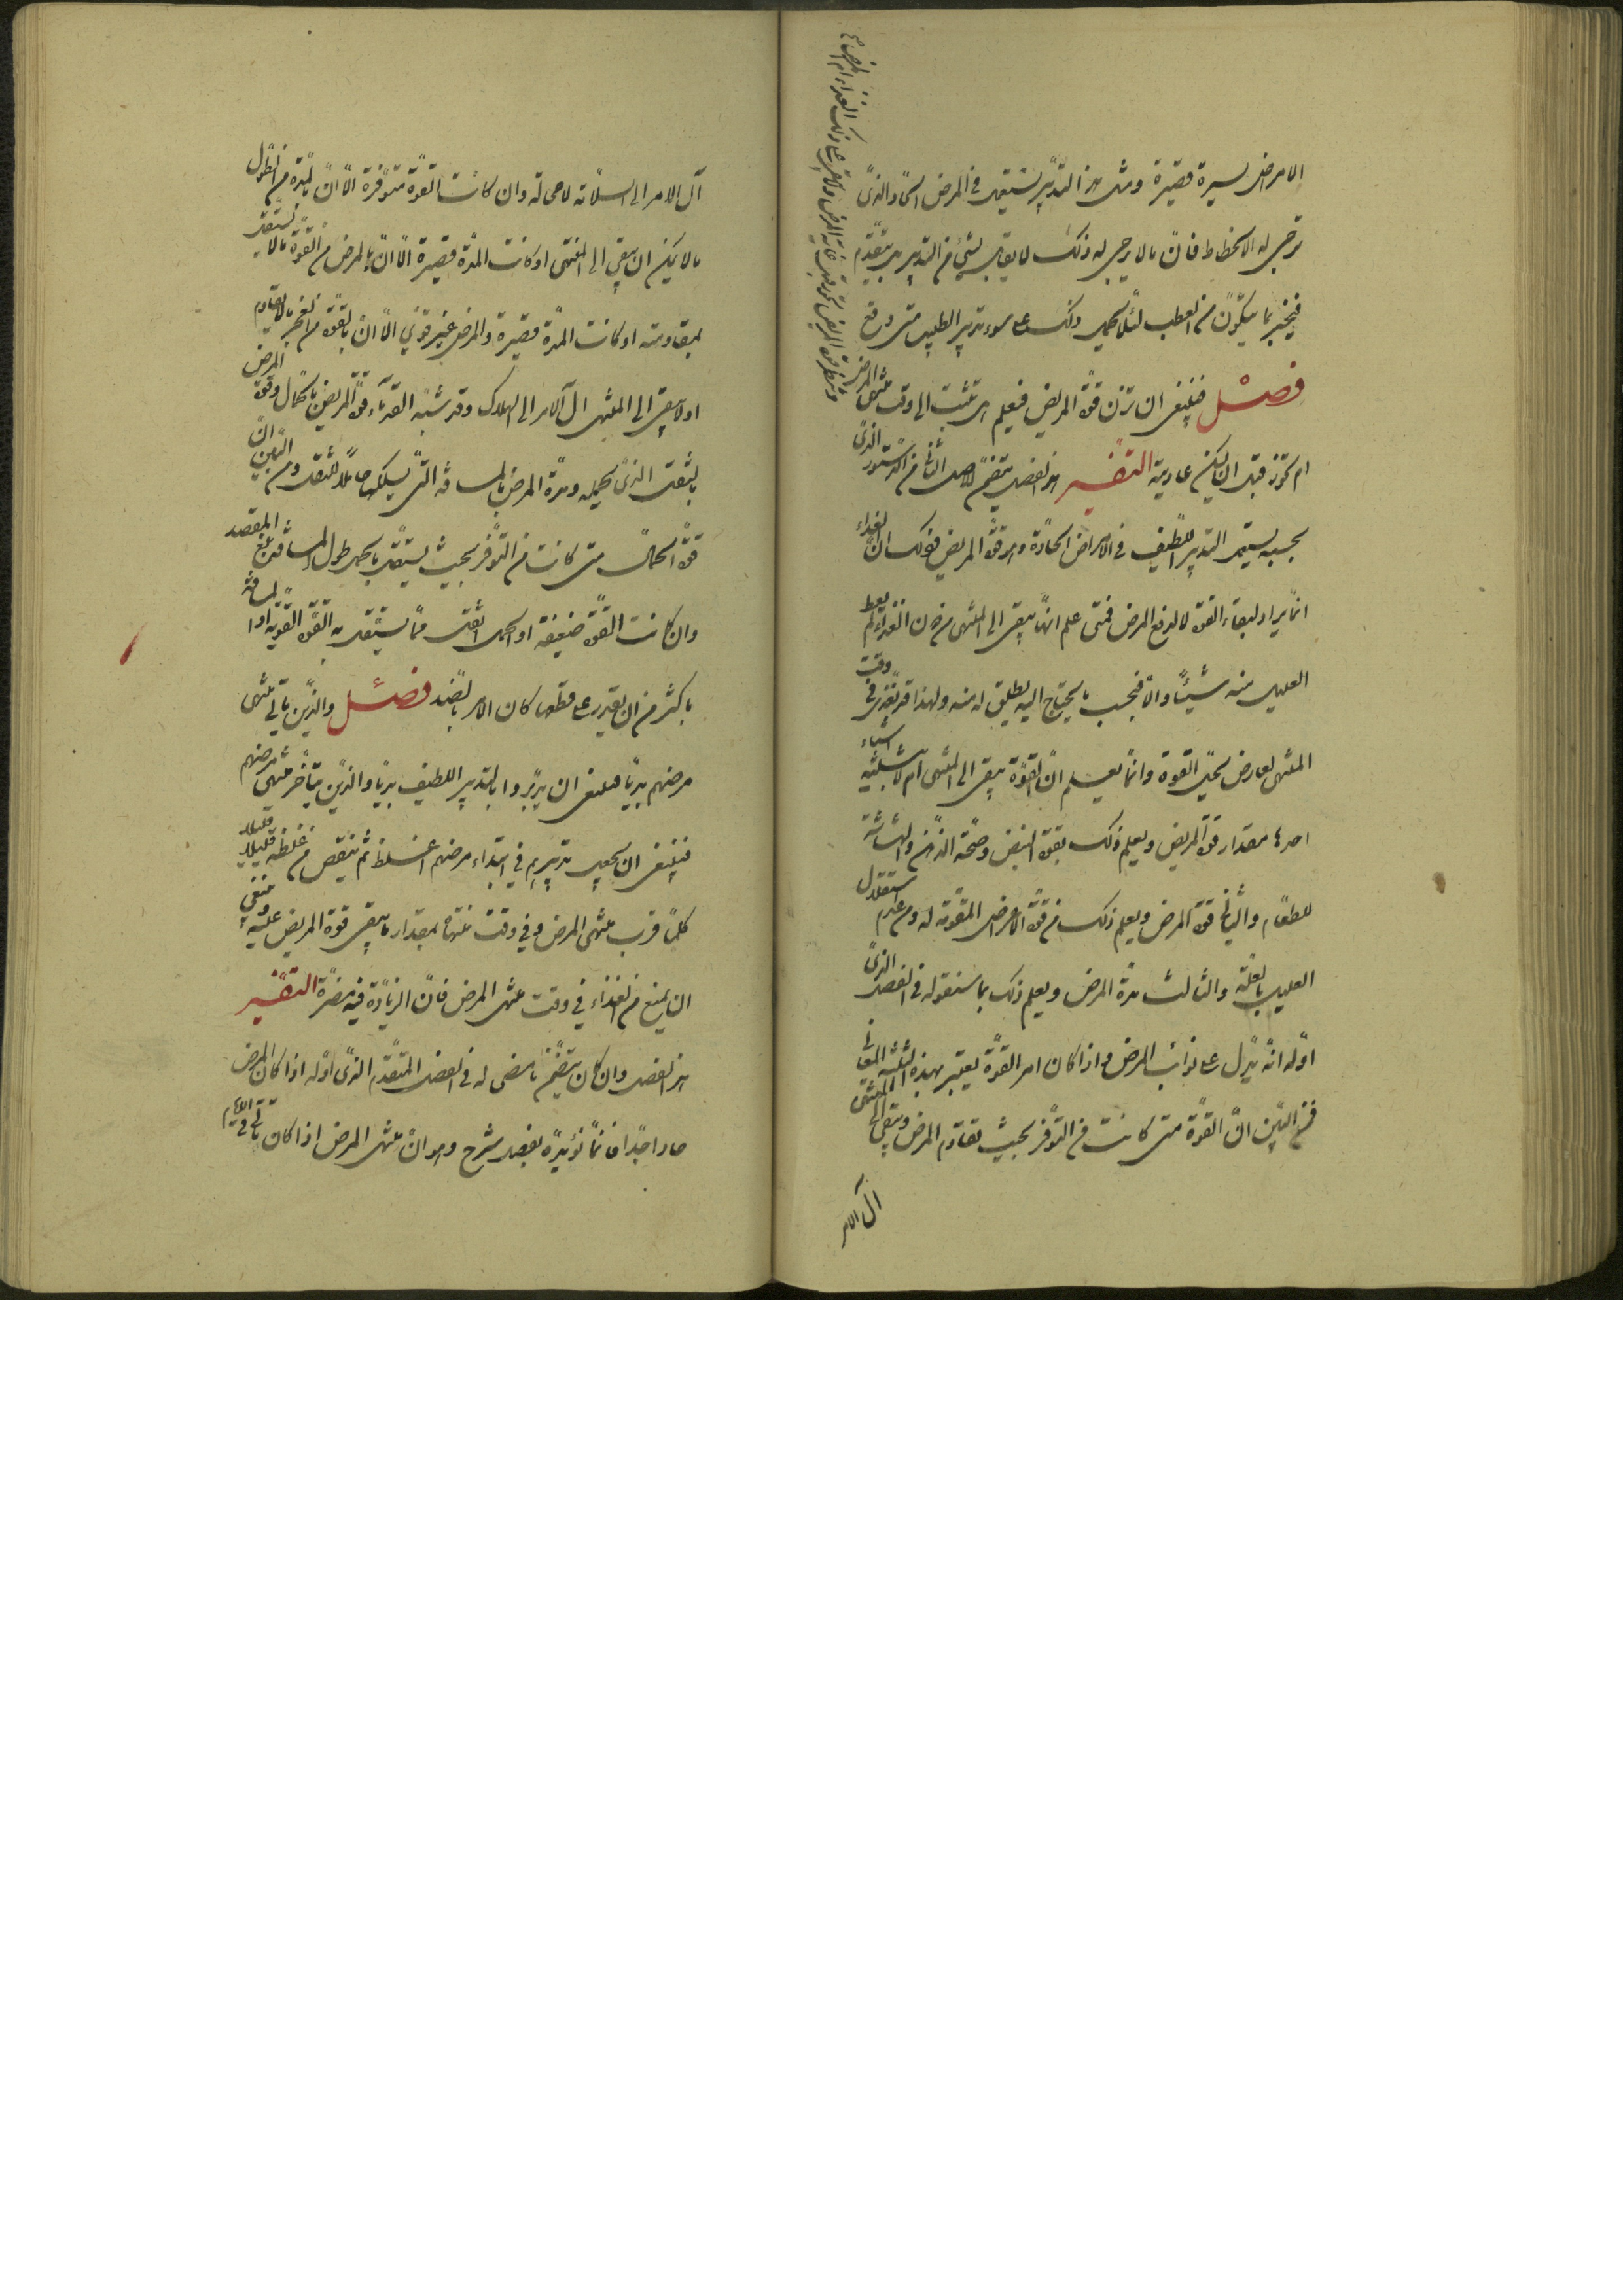 الامراض يسيرة قصيرة ومثل هذا التدبير يستعمل في المرض الحاد الذى
يرجى له الانحطاط فان ما لا يرجى له ذلك لا يقابل بشئ من التدبير بل يتقدم
فيخبر بما يتكون من العطب لئلا يحمل ذلك على سوء تدبير الطبيب متى وقع
فصل فينبغى ان تزن قوة المريض فيعلم هل تثبت الى وقت منتهى المرض
ام تخور قبل ان يكون عاديته التفسير هذا الفصل يتضمن الاصل الثانى من الدستور الذى
بحسبه يستعمل التدبير اللطيف في الامراض الحادة وهو قوة المريض وذلك ان الغذاء
انما يراد لبقاء القوة لا لدفع المرض فمتى علم انها تبقى الى المنتهى من دون الغذاء لم يعط
العليل منه شيئا والا فبحسب ما يحتاج اليه يطلق له منه ولهذا قد يغذى في وقت
المنتهى لعارض يحل القوة وانما يعلم ان القوة تبقى الى المنتهى ام لا بثلثة اشياء
احدها مقدار قوة المريض ويعلم ذلك بقوة النبض وصحة الذهن والهشاشة
للطعام والثانى قوة المرض ويعلم ذلك من قوة الاعراض المقومة له ومن عدم استقلال
العليل بالعلة والثالث مدة المرض ويعلم ذلك بما سنقوله في الفصل الذى
اوله انه يدل على نوائب المرض واذا كان امر القوة يعتبر بهذه الثلثة المعانى
فمن البين ان القوة متى كانت من التوفر بحيث تقاوم المرض وتبقى الى المنتهى
آل الامر
آل الامر الى السلامة لا محالة وان كانت القوة متوفرة الا ان بالمدة من الطول
ما لا يمكن ان تبقى الى المنتهى او كانت المدة قصيرة الا ان بالمرض من القوة ما لا يستقل
بمقاومته او كانت المدة قصيرة والمرض غير قوي الا ان بالقوة من الخور ما لا يقاوم المرض
او لا يبقى الى المنتهى آل الامر الى الهلاك وقد شبه القدماء قوة المريض بالحمال وقوة
بالثقل الذى يحمله ومدة المرض بالمسافة التى يسلكها حاملا للثقل ومن البين ان
قوة الحمال متى كانت من التوفر بحيث يستقل بالحمل طول المسافة بلغ المقصد
وان كانت القوة ضعيفة او الحمل اثقل مما يستقل به القوة القوية او المسافة
باكثر من ان يقدر على قطعها كان الامر بالضد فصل والذين ياتى منتهى
مرضهم بديا فينبغى ان يدبروا بالتدبير اللطيف بديا والذين يتاخر منتهى مرضهم
فينبغى ان يجعل تدبيرهم في ابتداء مرضهم اغلظ ثم ينقص من غلظه قليلا قليلا
كلما قرب منتهى المرض وفي وقت منتهاه بمقدار ما يبقى قوة المريض عليه وينبغي
ان يمنع من الغذاء في وقت منتهى المرض فان الزيادة فيه مضرة التفسير
هذا الفصل وان كان يتضمن ما مضى له في الفصل المتقدم الذى اوله اذا كان المرض
حادا جدا فانما نوئيده بفضل شرح وهو ان منتهى المرض اذا كان ياتى في الايام